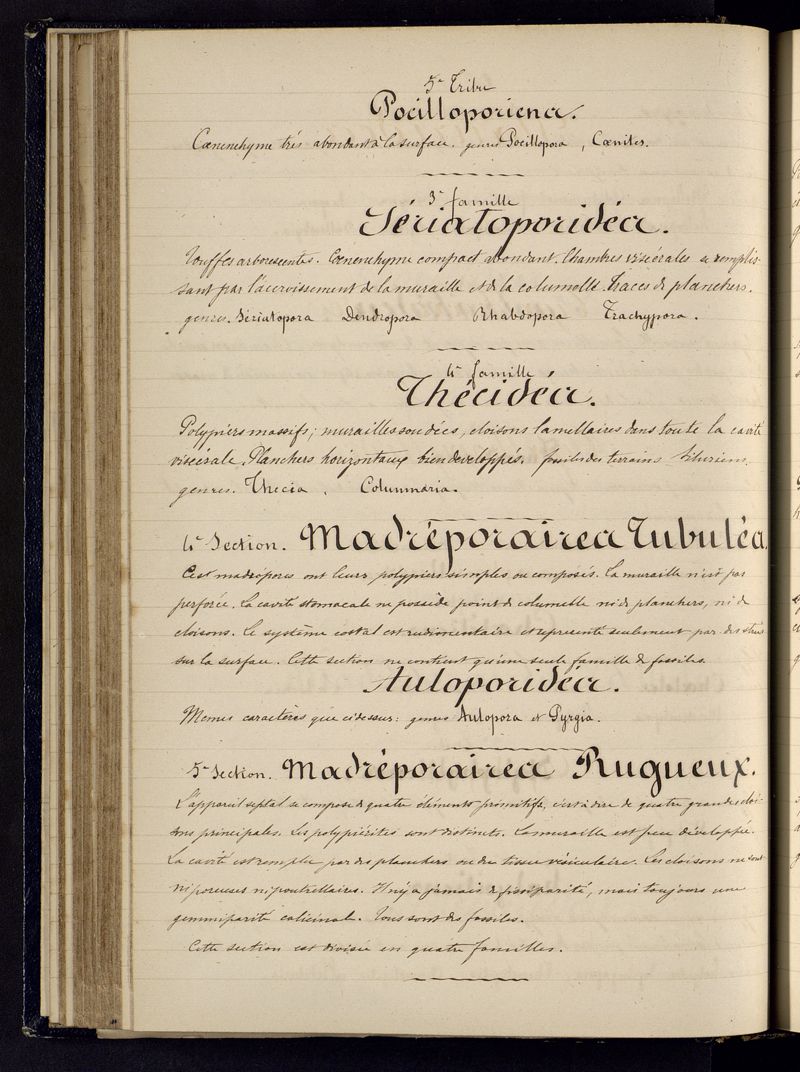 5e Tribu
Pocilloporiena.
Cœnenchyme très abondant à la surface. genres Pocillopora, Cœnites.
3e famille
Sériatoporidéa.
Touffes arborescentes. Cœnenchyme compact abondant. Chambres viscérales se remplis-
sant par l'accroissement de la muraille et de la columelle. Traces de planchers.
genres. Sériatopora Dendropora Rhabdopora Trachypora.
4e famille
Thécidéa.
Polypiers massifs; murailles soudées, cloisons lamellaires dans toute la cavité
viscérale. Planchers horizontaux bien developpés. fossiles des terrains siluriens.
genres. Thecia, Columnaria.
4e Section. Madréporairea Tubuléa.
Ces madrépores ont leurs polypiers simples ou composés. La muraille n'est pas
perforée. La cavité stomacale ne possède point de columelle ni de planchers, ni de
cloisons. Le système costal est rudimentaire et représenté seulement par des stries
sur la surface. Cette section ne contient qu'une seule famille de fossiles.
Auloporidéa.
Memes caractères que cidessus: genres Aulopora et Pyrgia.
5e Section. Madréporairea Rugueux.
L'appareil septal se compose de quatre éléments primitifs, c'est à dire de quatre grandes cloi-
sons principales. Les polypiérites sont distincts. La muraille est peu développée.
La cavité est remplie par des planchers ou du tissu vésiculaire. Les cloisons ne sont
ni poreuses ni poutrellaires. Il n'y a jamais de fissiparité, mais toujours une
gemmiparité calicinale. Tous sont des fossiles.
Cette section est divisée en quatre familles.